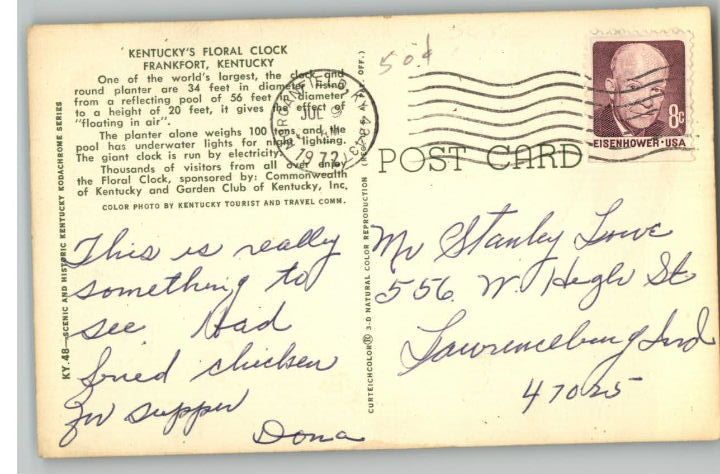 KENTUCKY'S FLORAL CLOCK
FRANKFORT, KENTUCKY
One of the world's largest, the clock and
round planter are 34 feet in diameter rising
from a reflecting pool of 56 feet in diameter
to a height of 20 feet, it gives the effect of
"floating in air".
The planter alone weighs 100 tons and the
pool has underwater lights for night lighting.
The giant clock is run by electricity.
Thousands of visitors from all over enjoy
the Floral Clock, sponsored by: Commonwealth
of Kentucky and Garden Club of Kentucky, Inc.
COLOR PHOTO BY KENTUCKY TOURIST AND TRAVEL COMM.
KY. 48—SCENIC AND HISTORIC KENTUCKY KODACHROME SERIES
This is really
something to
see Had
fried chicken
for supper
Dona
CURTEICHCOLOR® 3-D NATURAL COLOR REPRODUCTION (REG. U.S.A. PAT. OFF.)
50¢
JUL 9
PM
1972
8c
EISENHOWER·USA
POST CARD
Mr Stanley Lowe
556 W. High St
Lawrenceburg Ind
47025